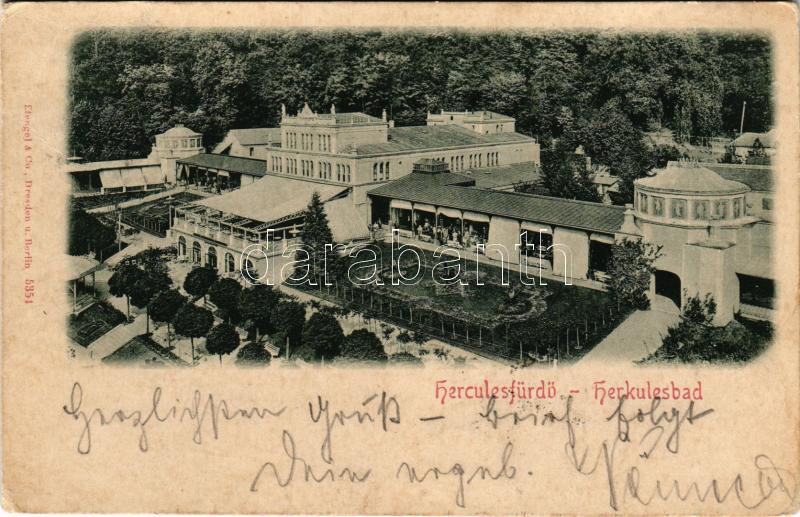 Stengel & Co., Dresden u. Berlin 5354
darabanth.com
Herculesfürdő – Herkulesbad
Herzlichsten Gruß – Brief folgt
Dein ergeb.